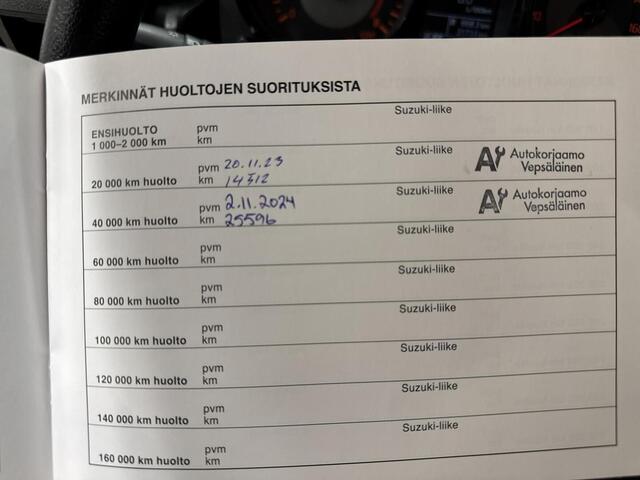 MERKINNÄT HUOLTOJEN SUORITUKSISTA
Suzuki-liike
ENSIHUOLTO pvm
1 000–2 000 km km
Suzuki-liike
pvm 20.11.23 Autokorjaamo
20 000 km huolto km 14512 Vepsäläinen
Suzuki-liike
pvm 2.11.2024 Autokorjaamo
40 000 km huolto km 25596 Vepsäläinen
Suzuki-liike
pvm
60 000 km huolto km
Suzuki-liike
pvm
80 000 km huolto km
Suzuki-liike
pvm
100 000 km huolto km
Suzuki-liike
pvm
120 000 km huolto km
Suzuki-liike
pvm
140 000 km huolto km
Suzuki-liike
pvm
160 000 km huolto km